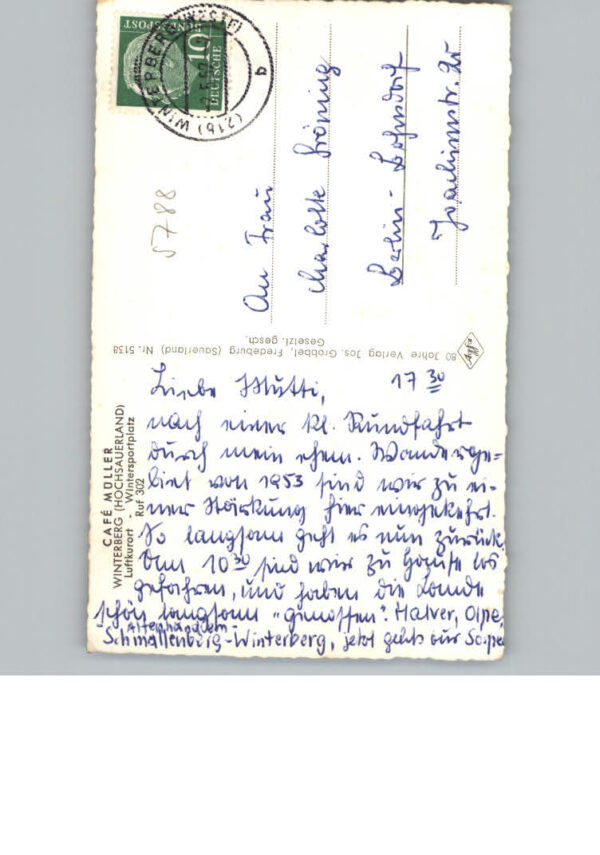 (21b) WINTERBERG (WESTF)
a
DEUTSCHE
BUNDESPOST
10
5788
An Frau
Charlotte Gröning
Berlin-Bohnsdorf
Joachimstr.
80 Jahre Verlag Jos. Grobbel, Fredeburg (Sauerland) Nr. 5138
Gesetzl. gesch.
Agfa
CAFÉ MÜLLER
WINTERBERG (HOCHSAUERLAND)
Luftkurort - Wintersportplatz
Ruf 302
Liebe Mutti, 17 30
nach einer kl. Rundfahrt
durch mein ehem. Wanderge=
biet von 1953 sind wir zu ei-
ner Stärkung hier eingekehrt.
So langsam geht es nun zurück.
Um 10 30 sind wir zu Hause los
gefahren, und haben die Lande
schön langsam "genossen". Halver, Olpe,
Altenhundem-
Schmallenberg-Winterberg, jetzt gehts zur Sorpe